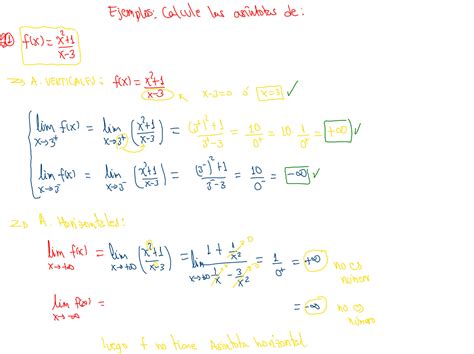 Ejemplos. Calcule las asíntotas de:
f(x) = x²+1 / x-3
A. VERTICALES: f(x) = x²+1 / x-3 x-3=0 ó x=3 ✓
lim x→3⁺ f(x) = lim x→3⁺ (x²+1 / x-3) = (3⁺)²+1 / 3⁺-3 = 10 / 0⁺ = 10 · 1 / 0⁺ = +∞ ✓
lim x→3⁻ f(x) = lim x→3⁻ (x²+1 / x-3) = (3⁻)²+1 / 3⁻-3 = 10 / 0⁻ = -∞ ✓
A. Horizontales:
lim x→+∞ f(x) = lim x→+∞ (x²+1 / x-3) = lim x→+∞ 1 + 1/x² / 1/x - 3/x² = 1 / 0⁺ = +∞ no es número
lim x→-∞ f(x) = = -∞ no es número
luego f no tiene Asíntota horizontal